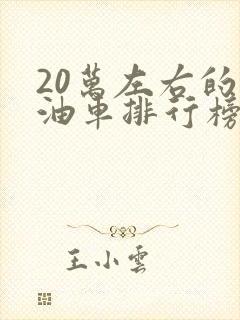 20萬左右的
油車排行榜
王小雲